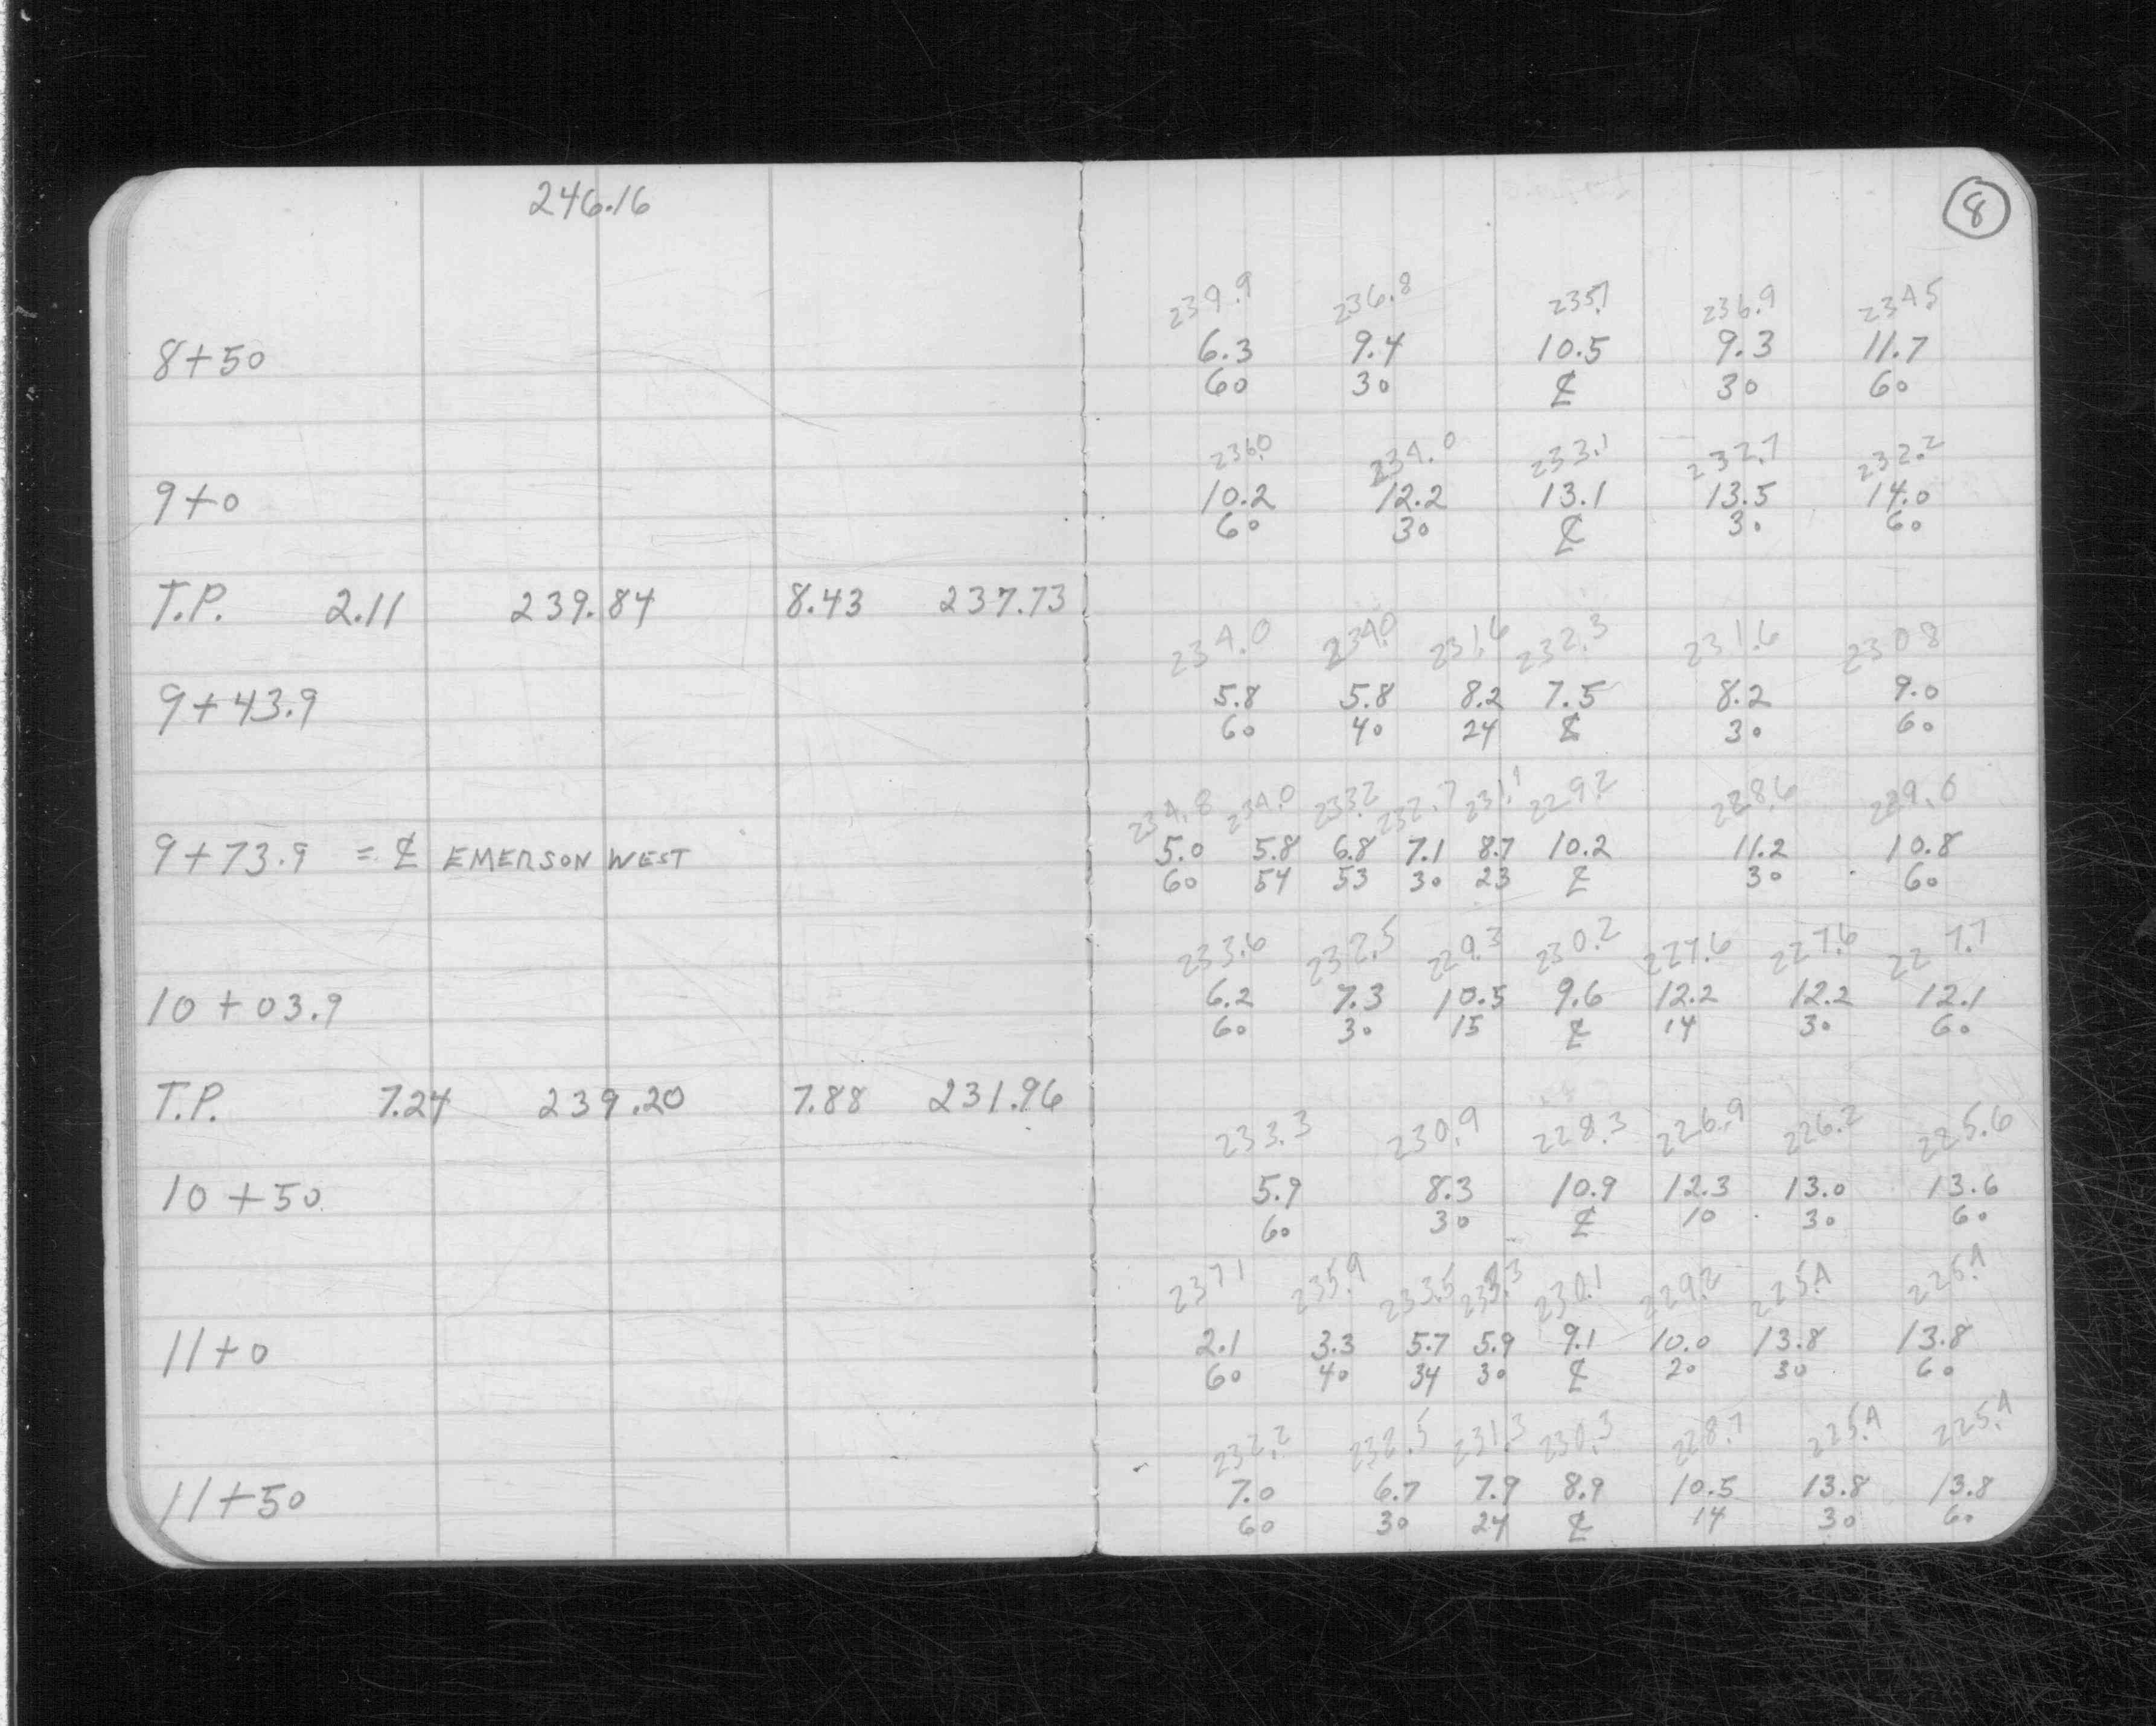 246.16
8
239.9 236.8 235.7 236.9 234.5
8+50 6.3 9.4 10.5 9.3 11.7
60 30 ℄ 30 60
236.0 234.0 233.1 232.7 232.2
9+0 10.2 12.2 13.1 13.5 14.0
60 30 ℄ 30 60
T.P. 2.11 239.84 8.43 237.73
234.0 234.0 231.6 232.3 231.6 230.8
9+43.9 5.8 5.8 8.2 7.5 8.2 9.0
60 40 24 ℄ 30 60
234.8 234.0 233.2 232.7 231.1 229.2 228.6 229.0
9+73.9 = ℄ EMERSON WEST 5.0 5.8 6.8 7.1 8.7 10.2 11.2 10.8
60 54 53 30 23 ℄ 30 60
233.6 232.5 229.3 230.2 227.6 227.6 227.7
10+03.9 6.2 7.3 10.5 9.6 12.2 12.2 12.1
60 30 15 ℄ 14 30 60
T.P. 7.24 239.20 7.88 231.96
233.3 230.9 228.3 226.9 226.2 225.6
10+50 5.9 8.3 10.9 12.3 13.0 13.6
60 30 ℄ 10 30 60
237.1 235.9 233.5 230.1 229.2 225.4 225.4
11+0 2.1 3.3 5.7 5.9 9.1 10.0 13.8 13.8
60 40 34 30 ℄ 20 30 60
232.2 232.5 231.3 230.3 228.7 225.4 225.4
11+50 7.0 6.7 7.9 8.9 10.5 13.8 13.8
60 30 24 ℄ 14 30 60